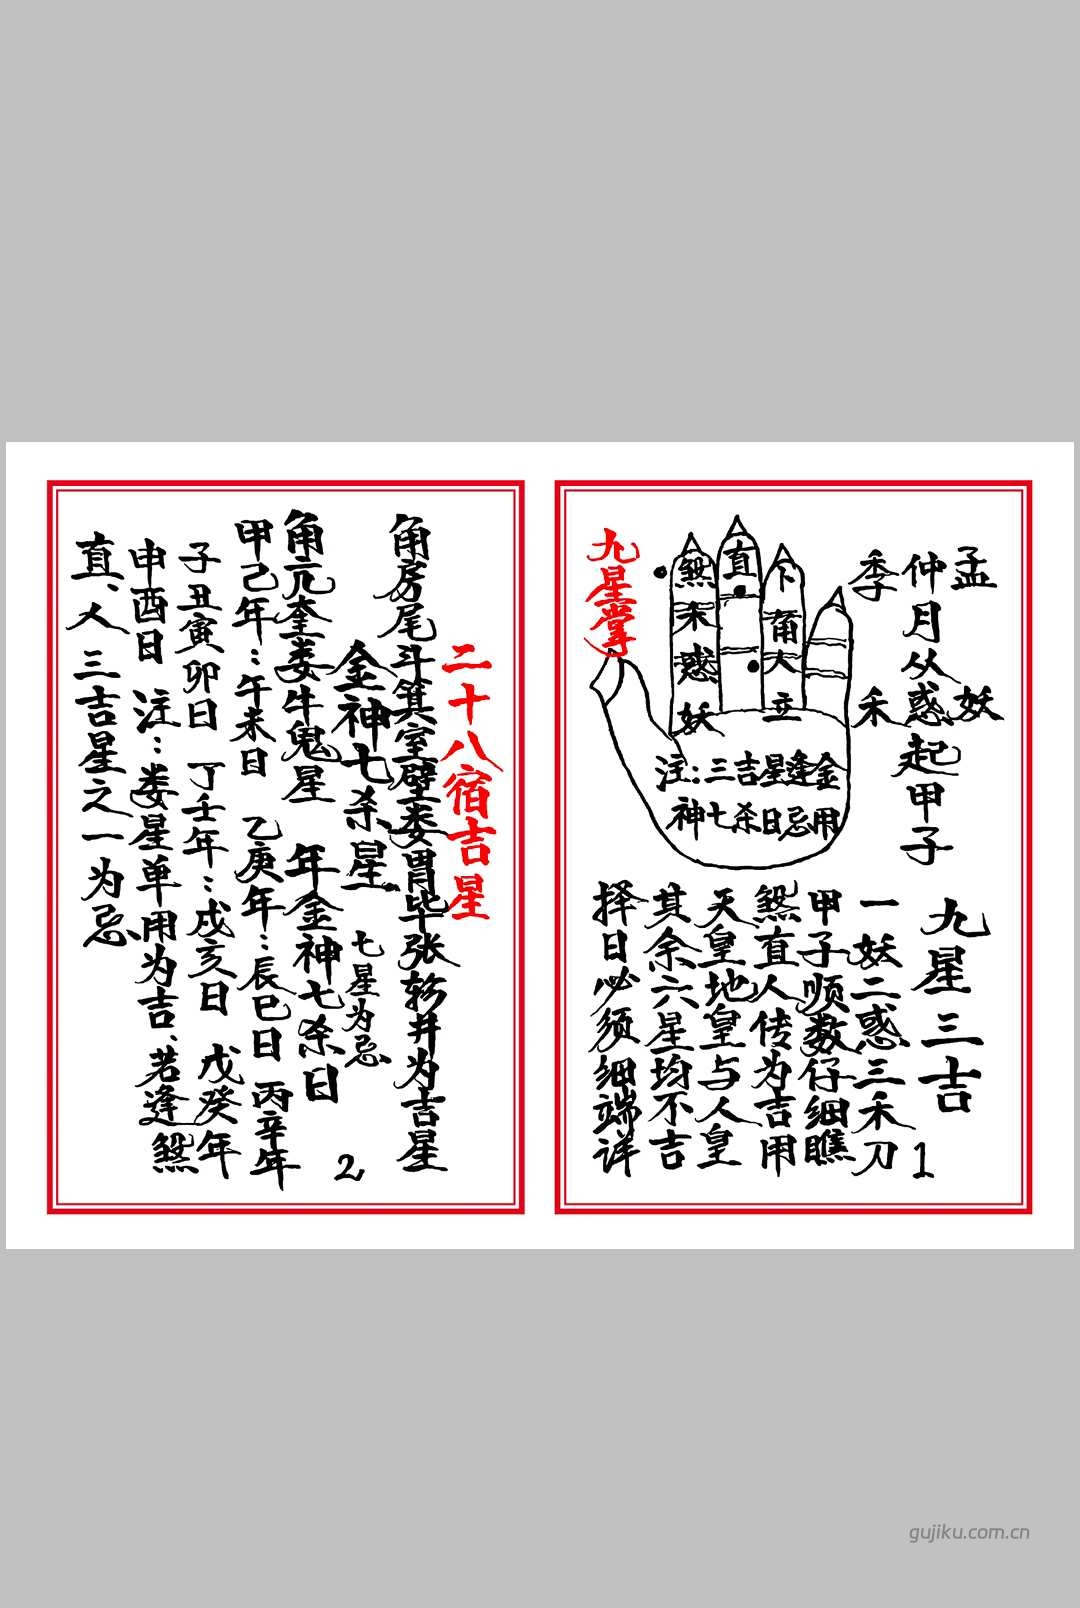 孟 妖
仲月从惑起甲子
季 禾
九星掌
煞 禾 惑 妖
直
卜 角 大 立
注:三吉星逢金
神七杀日忌用
九星三吉
一妖二惑三禾刀
甲子顺数仔细瞧
煞直人传为吉用
天皇地皇与人皇
其余六星均不吉
择日必须细端详
1
二十八宿吉星
角房尾斗箕室壁娄胃毕张轸井为吉星
金神七杀星 七星为忌
角亢奎娄牛鬼星 年金神七杀日
甲己年:午未日 乙庚年:辰巳日 丙辛年
子丑寅卯日 丁壬年:戌亥日 戊癸年
申酉日 注:娄星单用为吉、若逢煞
直、人 三吉星之一为忌
2
gujiku.com.cn